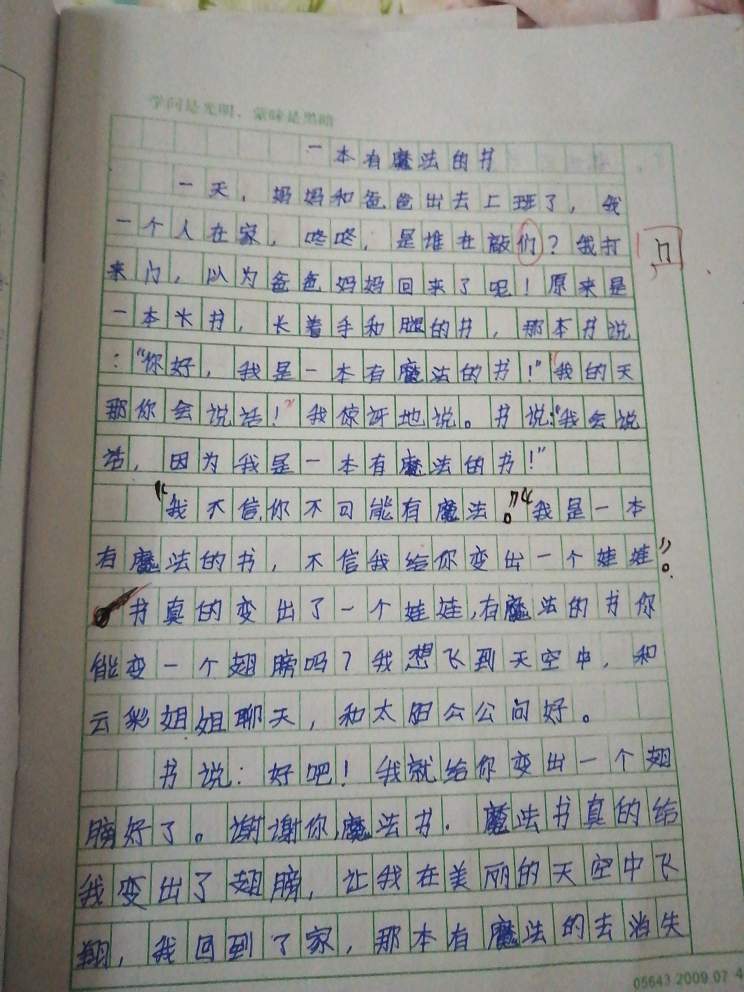 学问是光明，蒙昧是黑暗
一本有魔法的书
一天，妈妈和爸爸出去上班了，我
一个人在家，咚咚，是谁在敲们？我打
门
来门，以为爸爸妈妈回来了呢！原来是
一本大书，长着手和腿的书，那本书说
：“你好，我是一本有魔法的书！”“我的天
那你会说话！”我惊讶地说。书说：“我会说
话，因为我是一本有魔法的书！”
“我不信，你不可能有魔法。”“我是一本
有魔法的书，不信我给你变出一个娃娃”。
书真的变出了一个娃娃，有魔法的书你
能变一个翅膀吗？我想飞到天空中，和
云彩姐姐聊天，和太阳公公问好。
书说：好吧！我就给你变出一个翅
膀好了。谢谢你，魔法书．魔法书真的给
我变出了翅膀，让我在美丽的天空中飞
翔，我回到了家，那本有魔法的去消失
05643.2009.07 4